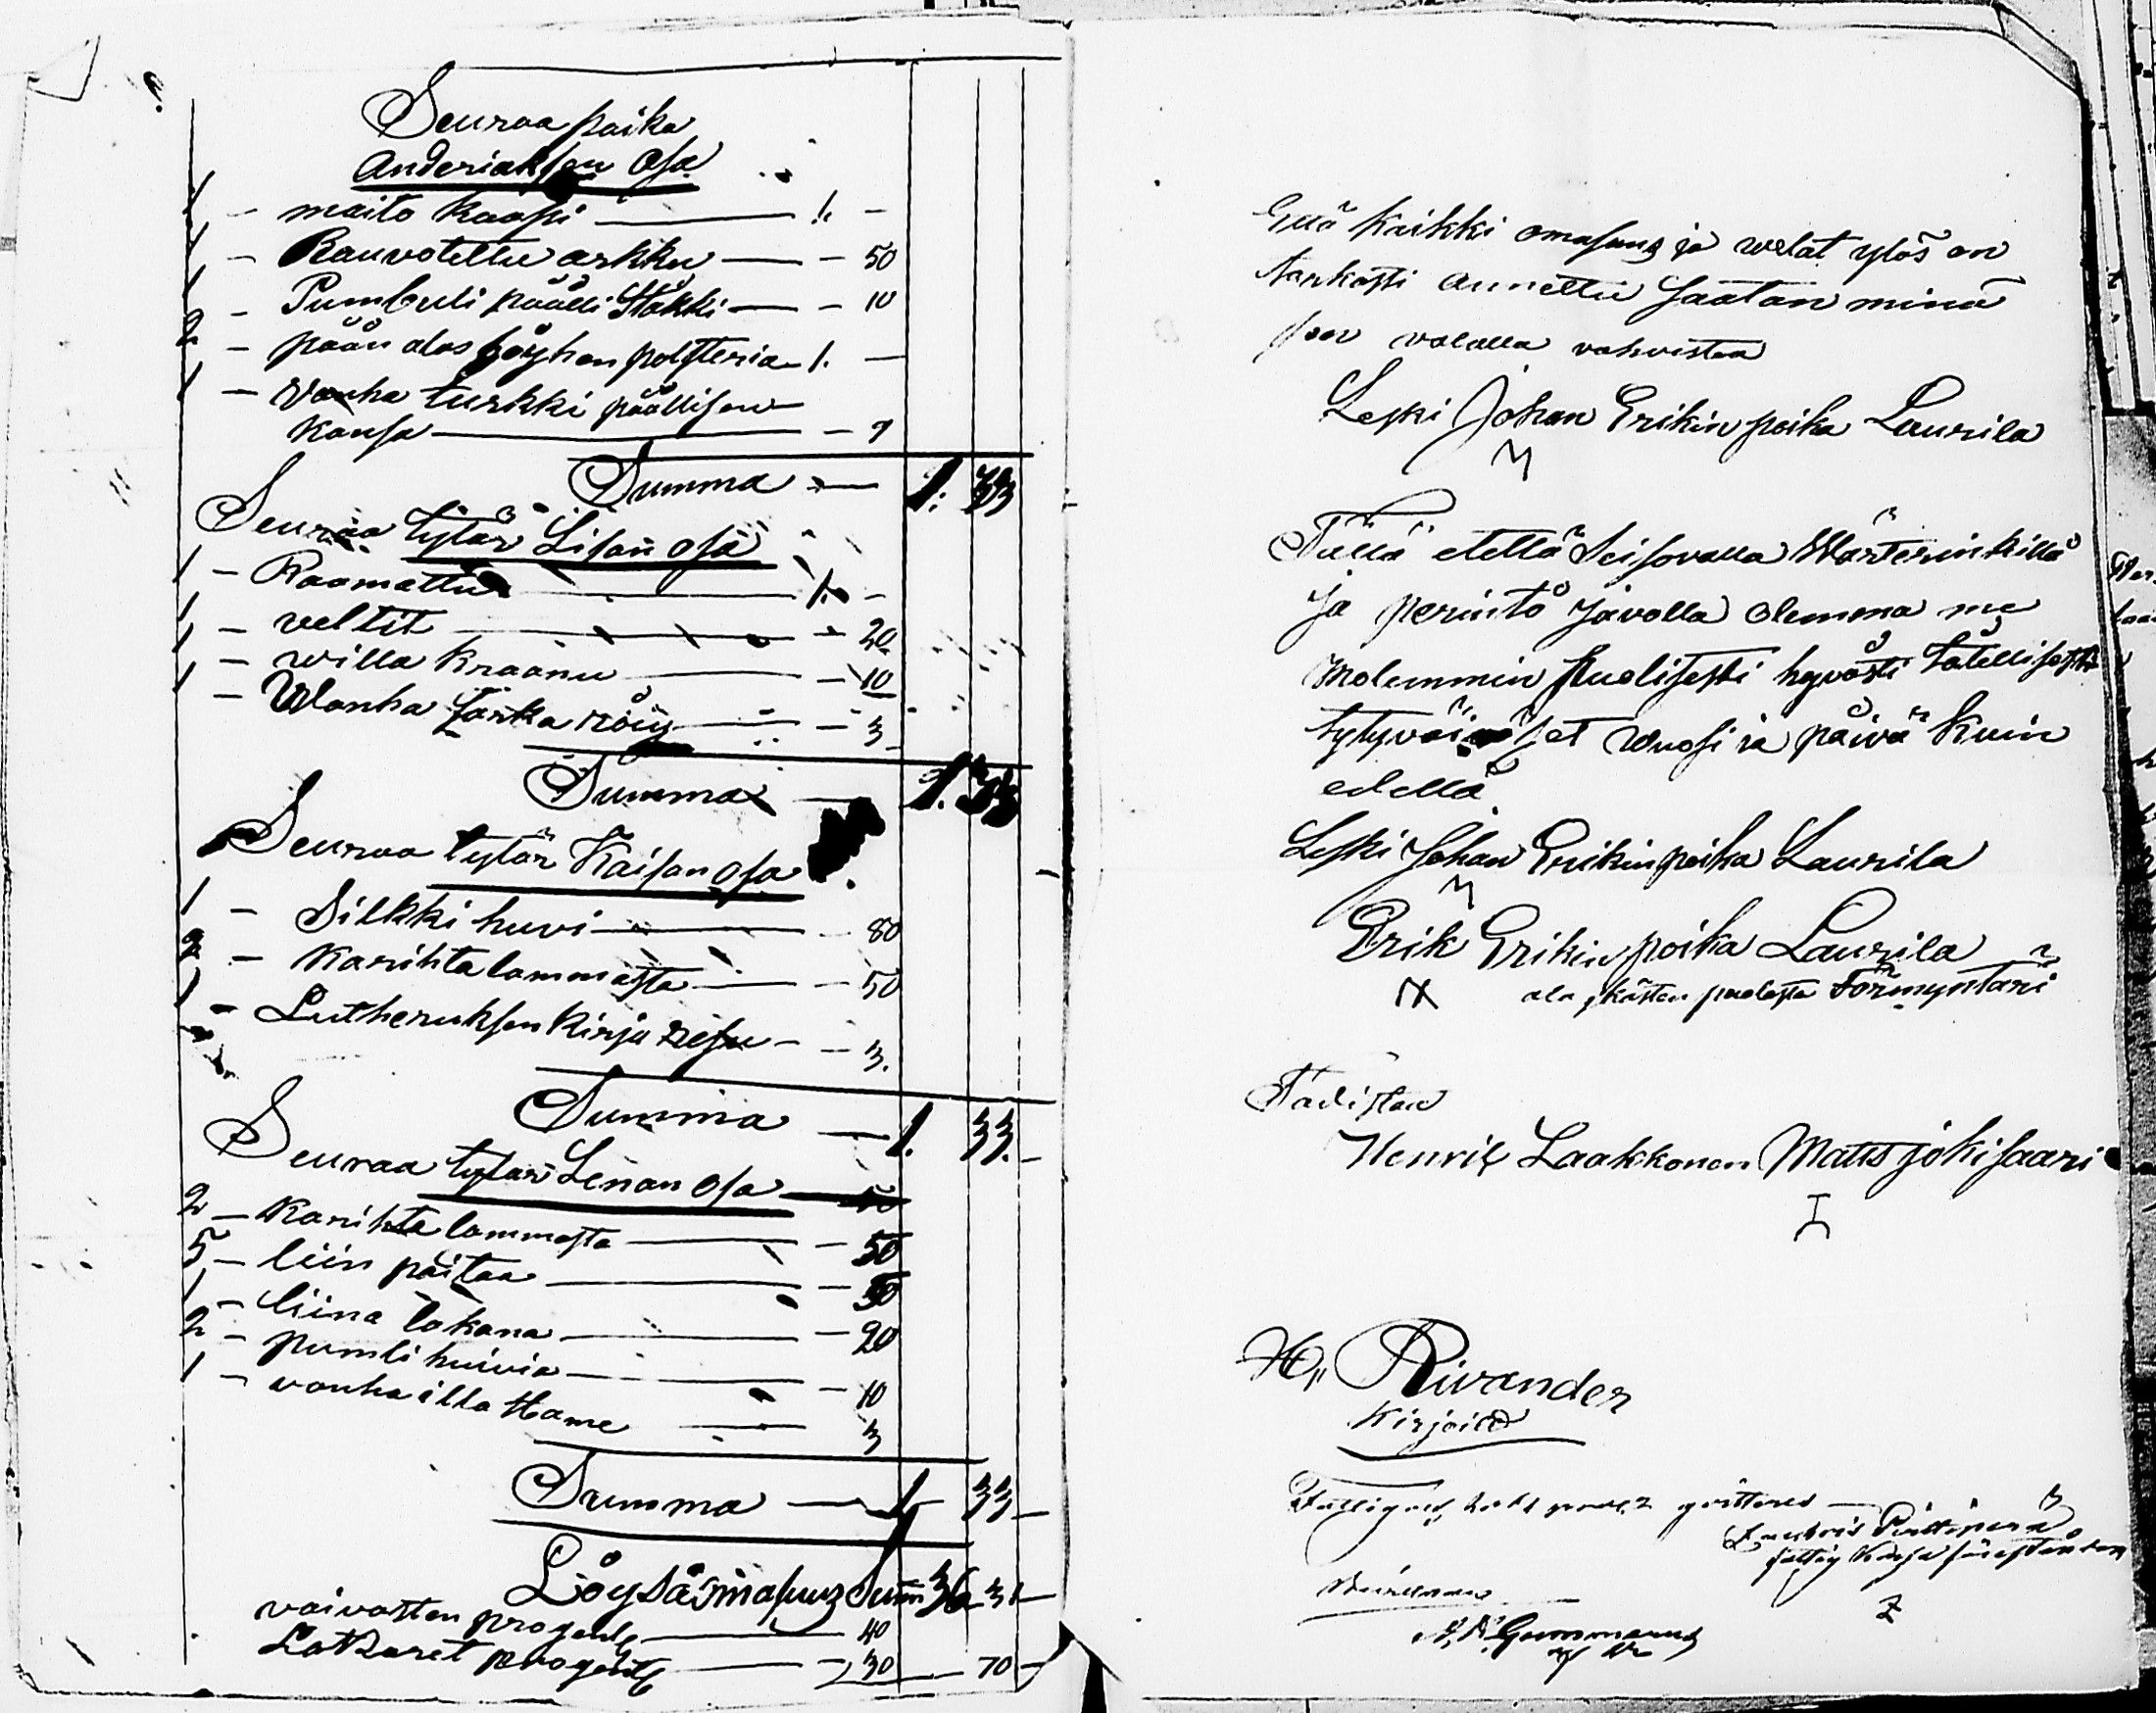 Seuraa poika
Anderiaksen Osa
1 - maito kaappi - 1. -
1 - Rauvotettu arkku - - 50
1 - Pumbuli päälli Stäkki - - 10
2 - pään alos höyhen polsteria - 1. -
1 - Vanha turkki päällisen
kansa - - 9
Summa - 1. 33
Seuraa tytär Lisan osa
1 - Raamattu - 1. -
1 - veltit - - 20
1 - willa kraanu - - 10
1 - Wanha särka röijy - - 3
Summa 1. 33
Seuraa tytär Kaisan osa
1 - Silkki huvi - - 80
2 - karihta lammasta - - 50
1 - Lutheruksen kirja - - 3.
Summa - 1. 33. -
Seuraa tytär Lenan osa
2 - karihta lammasta - - 50
5 - liin paitaa - - 50
1 - liina lakana - - 20
2 - pumli huivia - - 10
1 - vanha illa Hame - 3
Summa - 1 33 -
Löysä omasuuz Sum 36 31 -
vaivasten progente - 40
Latzaret progente - - 30 - 70 -
Että kaikki omasuuz ja welat ylös on
tarkasti annettu saatan minä
valalla vahvistaa
Leski Johan Erikin poika Laurila
Tällä edellä Seisovalla Wärterinkillä
ja perintö javolla olemma me
molemmin puolisesti hyvästi
tytyväiset wuosi ja päivä kuin
edellä
Leski Johan Erikin poika Laurila
Erik Erikin poika Laurila
ala ikästen puolesta Förmyntäri
Todistaa
Henrik Laakkonen Matts jokisaari
H. Rivander
Kirjoitti
Fattigas procent qvitteras -